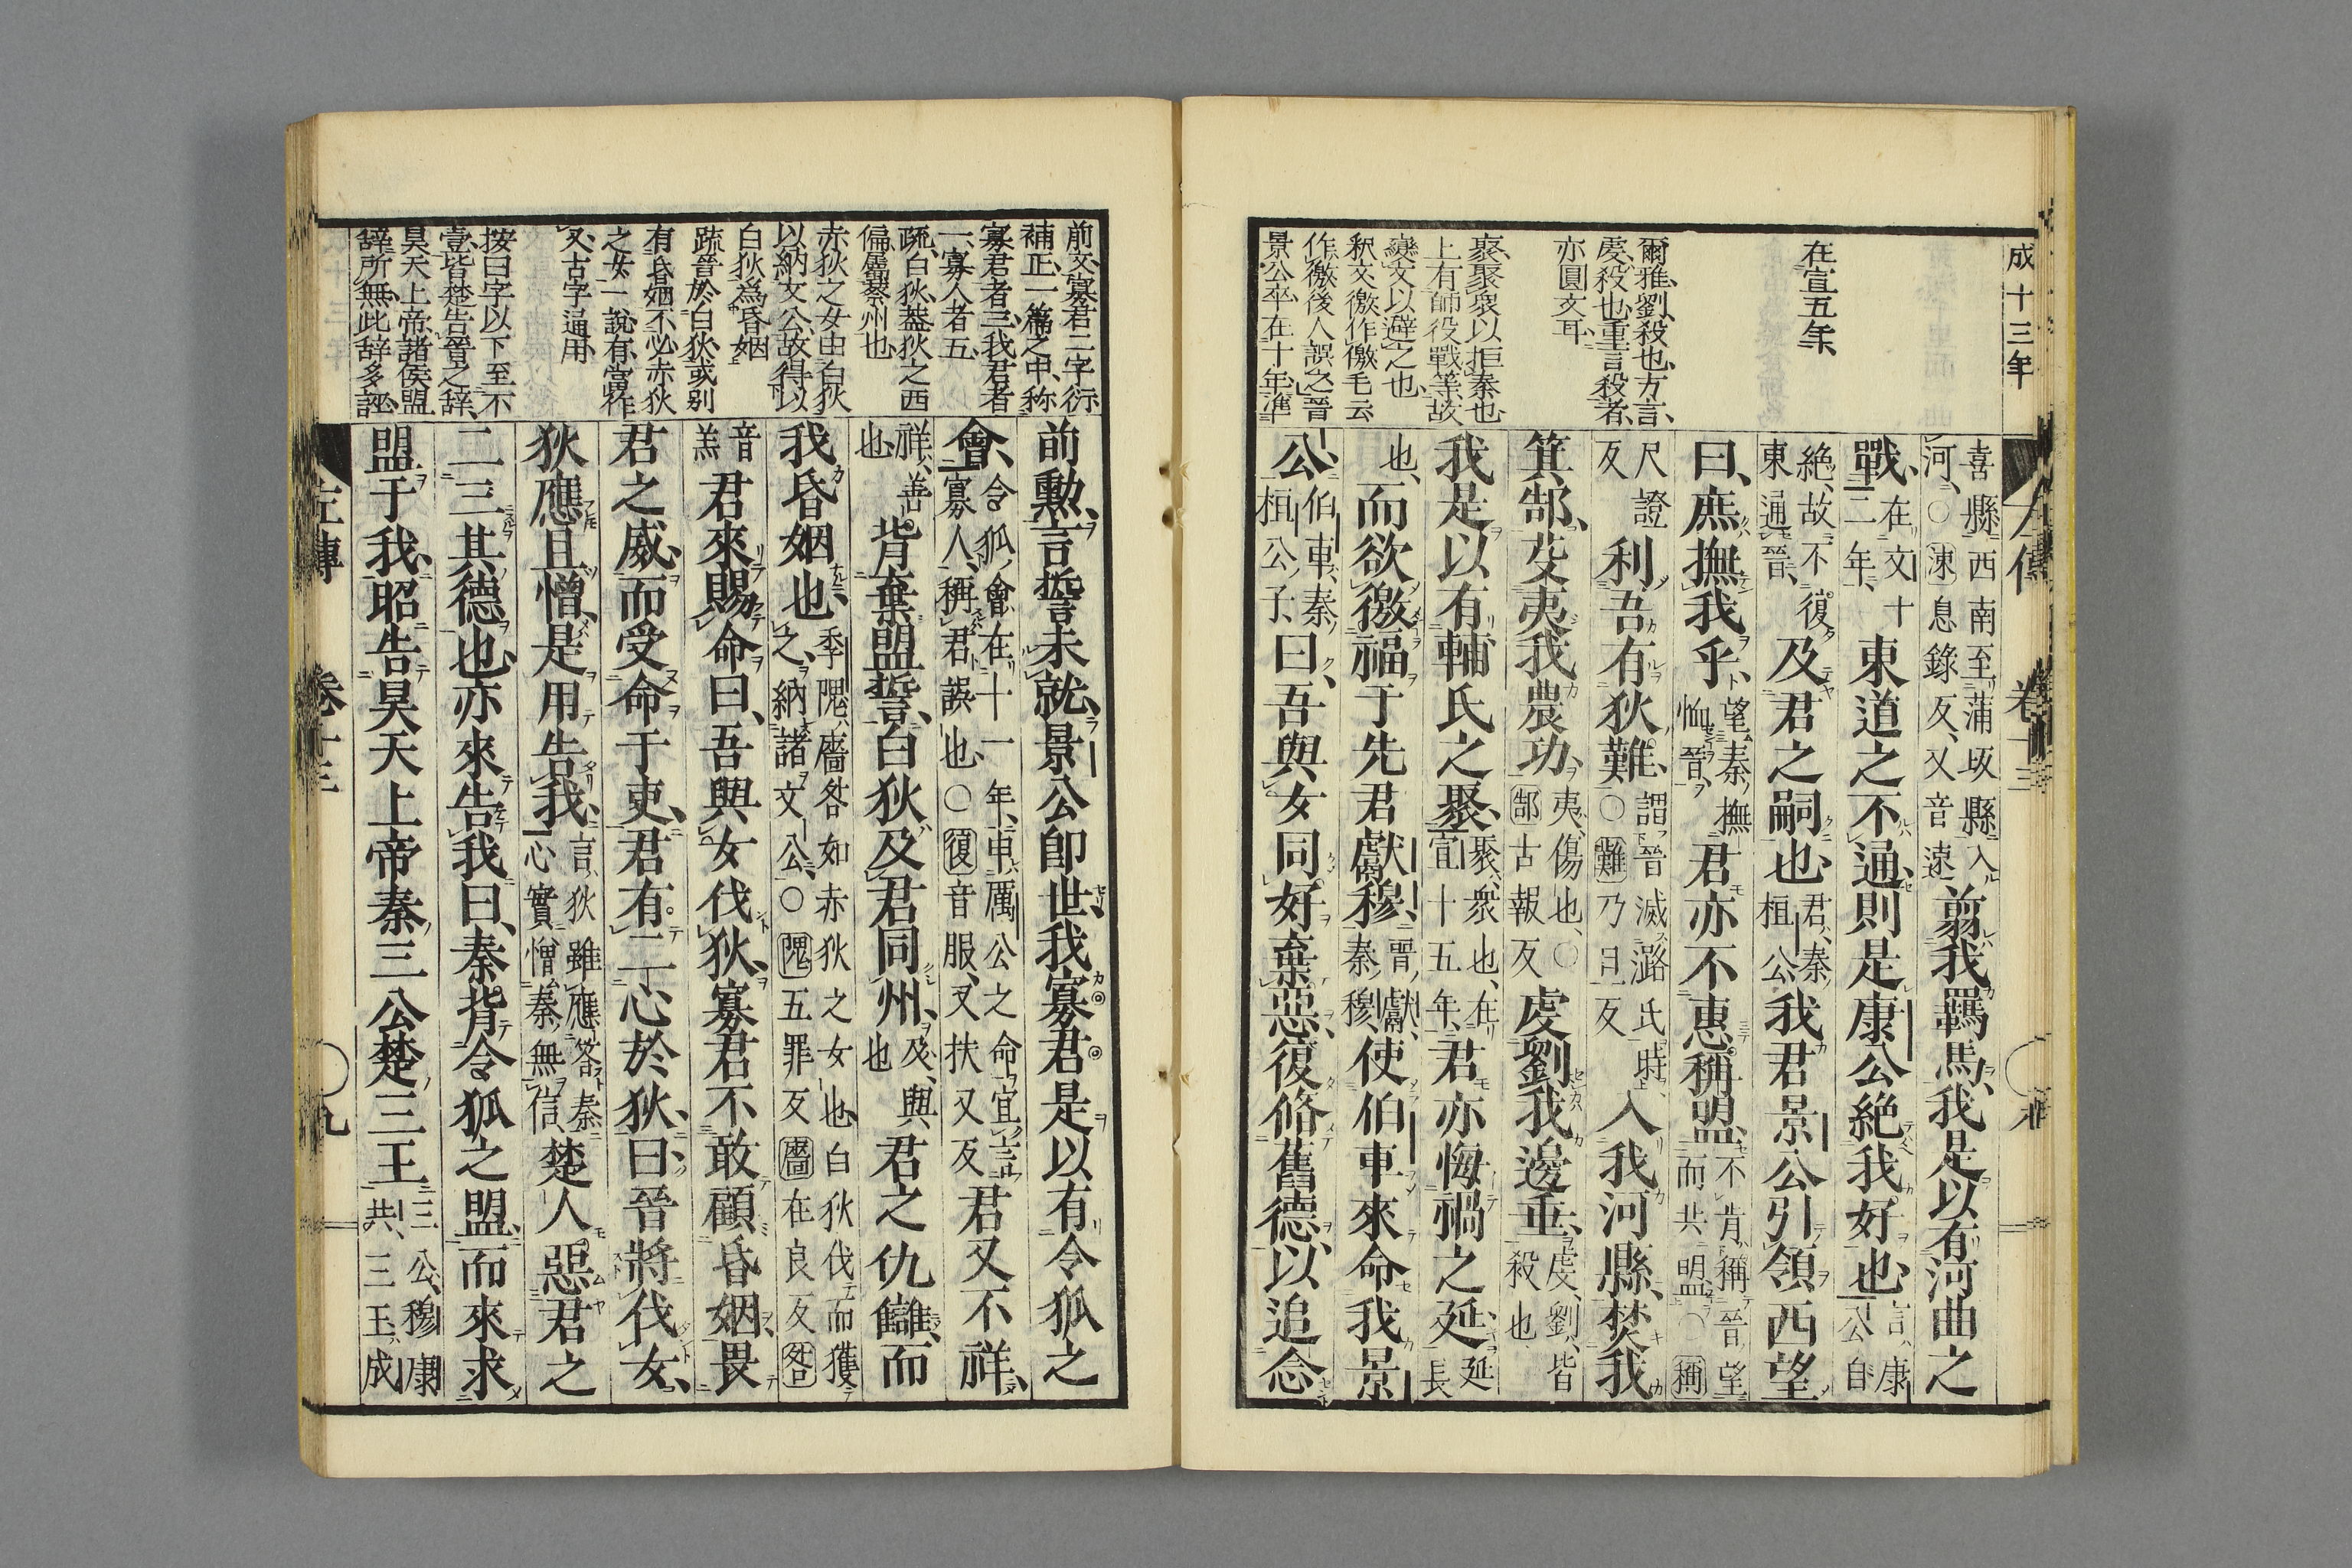 成十三年
在宣五年
爾雅劉殺也方言
虔殺也重言殺者
亦圓文耳
聚聚衆以拒秦也
上有師役戰等故
變文以避之也
釈文徼作儌毛云
作徼後人誤之晉
景公卒在十年準
左傳 卷十三 九
喜縣西南至蒲坂縣入
河○涑息錄反又音速
翦我羈馬我是以有河曲之
戰
在文十
二年
東道之不通則是康公絶我好也
言康
公自
絶故不復
東通晉
及君之嗣也
君秦
桓公
我君景公引領西望
曰庶撫我乎
望秦撫
恤晉
君亦不惠稱盟
不肯稱晉望
而共盟○稱
尺證
反
利吾有狄難
謂晉滅潞氏時
○難乃旦反
入我河縣焚我
箕郜芟夷我農功
夷傷也○
郜古報反
虔劉我邊垂
虔劉皆
殺也
我是以有輔氏之聚
聚衆也在
宣十五年
君亦悔禍之延
延
長
也
而欲徼福于先君獻穆
晉獻
秦穆
使伯車來命我景
公
伯車秦
桓公子
曰吾與女同好棄惡復脩舊德以追念
前文寡君二字衍
補正一篇之中称
寡君者三我君者
一寡人者五
疏白狄蓋狄之西
偏屬蔡州也
赤狄之女由白狄
以納文公故得以
白狄爲昏姻
疏晉於白狄或别
有昏姻不必赤狄
之女一說有當作
又古字通用
按曰字以下至不
壹皆楚告晉之辞
昊天上帝諸侯盟
辞所無此辞多誣
前勳言誓未就景公卽世我寡君是以有令狐之
會
令狐會在十一年車厲公之命宜言
寡人稱君誤也○復音服又扶又反
君又不祥
祥善
也
背棄盟誓白狄及君同州
及與
也
君之仇讎而
我昏姻也
季隗廧咎如赤狄之女也白狄伐而獲
之納諸文公○隗五罪反廧在良反咎
音
羔
君來賜命曰吾與女伐狄寡君不敢顧昏姻畏
君之威而受命于吏君有二心於狄曰晉將伐女
狄應且憎是用告我
言狄雖應答秦
心實憎秦無信
楚人惡君之
二三其德也亦來告我曰秦背令狐之盟而來求
盟于我昭告昊天上帝秦三公楚三王
三公穆康
共三王成
左傳 卷十三 九